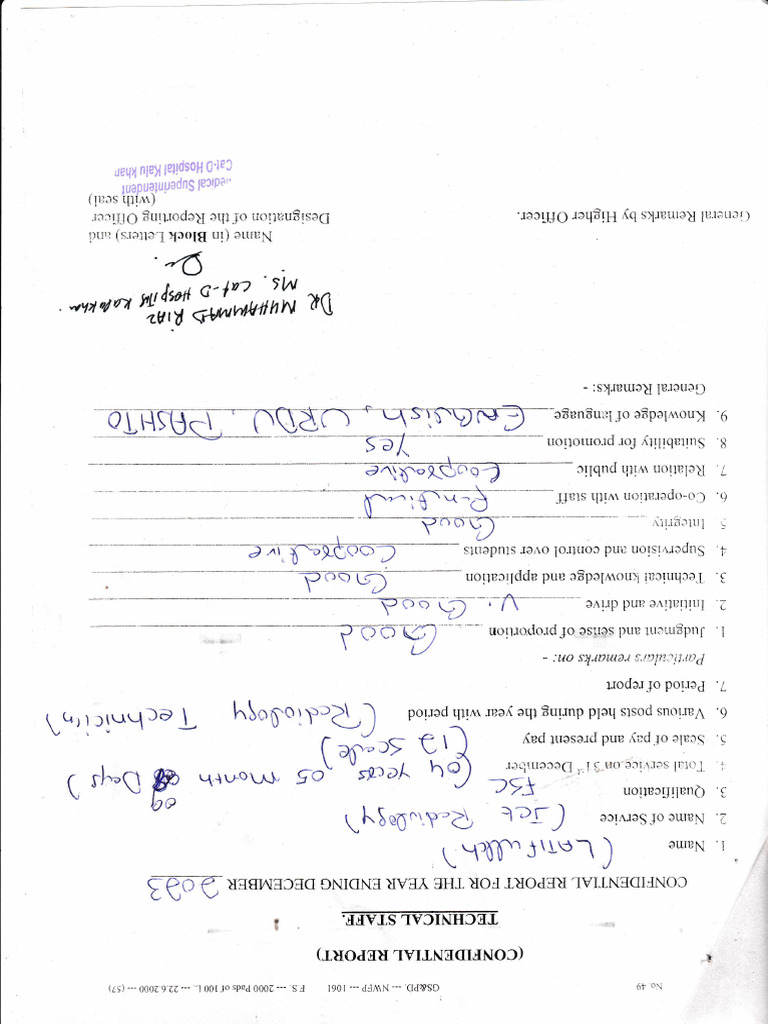 No. 49 GS&PD. --- NWFP --- 1061 F.S. --- 2000 Pads of 100 L --- 22.6.2000 --- (57)
(CONFIDENTIAL REPORT)
TECHNICAL STAFF.
CONFIDENTIAL REPORT FOR THE YEAR ENDING DECEMBER 2023
1. Name (LATIFullah)
2. Name of Service (JCT Radiology)
3. Qualification FSC
4. Total service on 31st December (04 years 05 month 09 Days)
5. Scale of pay and present pay (12 scale)
6. Various posts held during the year with period (Radiology Technician)
7. Period of report
Particulars remarks on: -
1. Judgment and sense of proportion Good
2. Initiative and drive V. Good
3. Technical knowledge and application Good
4. Supervision and control over students Cooprative
5 Integrity Good
6. Co-operation with staff
7. Relation with public Cooprative
8. Suitability for promotion Yes
9. Knowledge of language English, URDU, PASHTO
General Remarks: -
DR MUHAMMAD RIAZ
MS. Cat-D Hospital Kalu khan.
Name (in Block Letters) and
Designation of the Reporting Officer
(with seal)
General Remarks by Higher Officer.
edical Superintendent
Cat-D Hospital Kalu khan